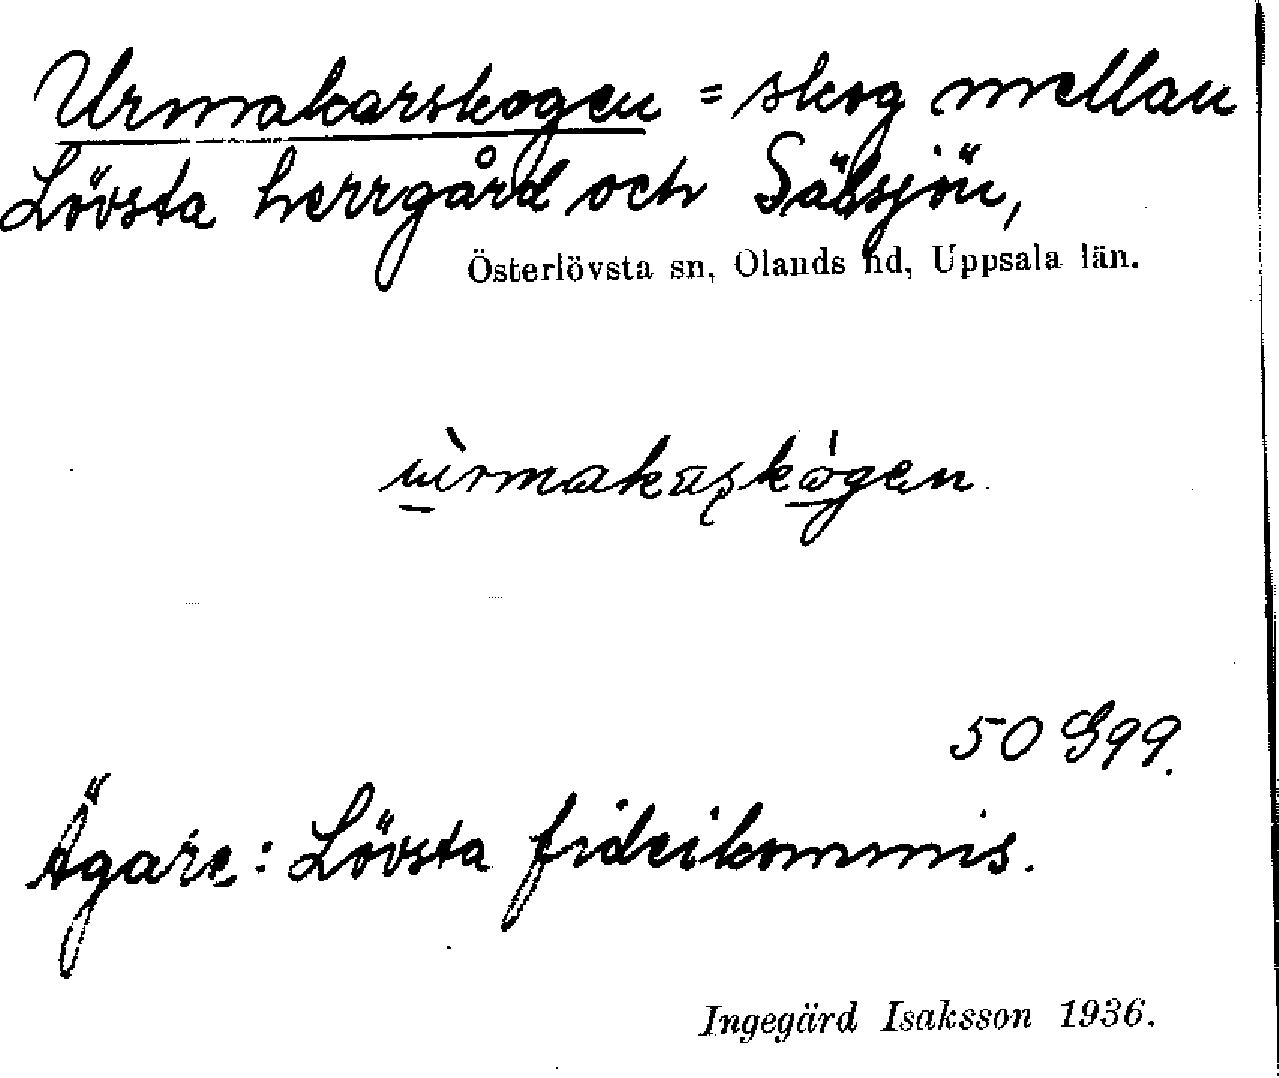 Urmakarskogen = skog mellan
Lövsta herrgård och Sälsjön,
Österlövsta sn, Olands hd, Uppsala län.
ùrmakaskógen
50 G 99.
Ägare: Lövsta fideikommis.
Ingegärd Isaksson 1936.